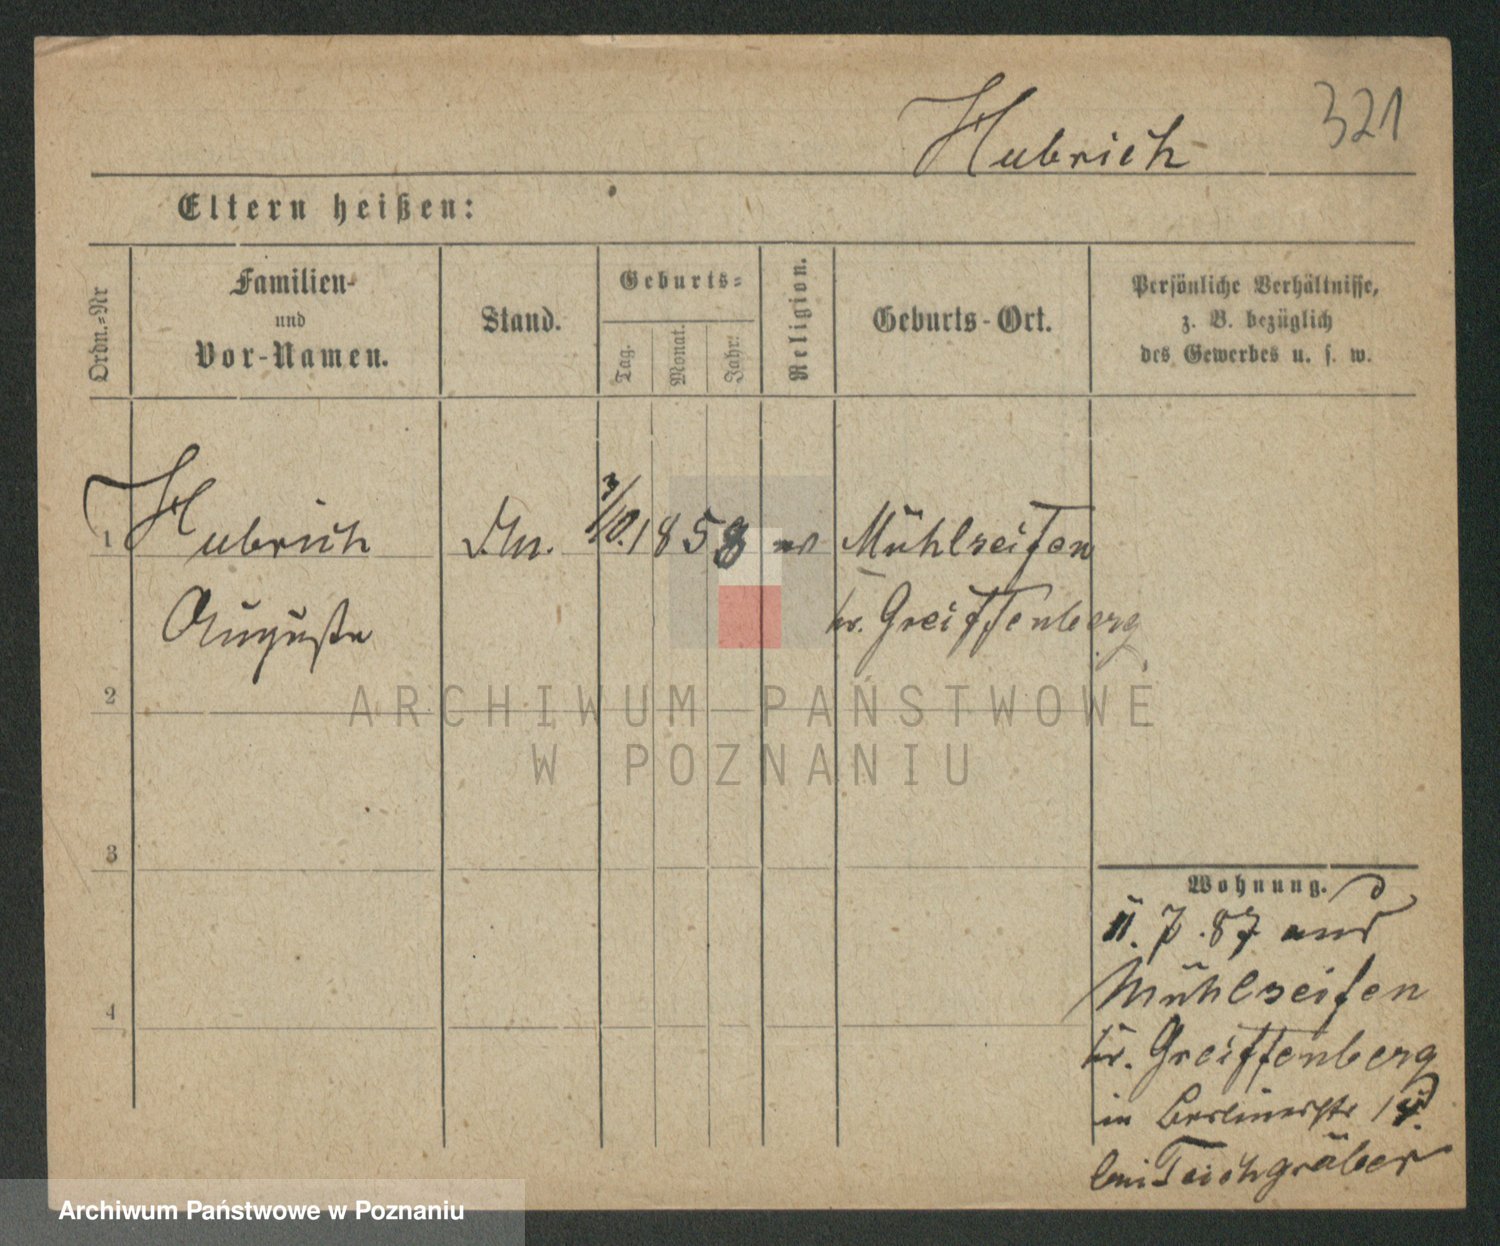 321
Hubrich
Eltern heißen:
Ordn.=Nr
Familien-
und
Vor-Namen.
Stand.
Geburts=
Tag.
Monat.
Jahr:
Religion.
Geburts-Ort.
Persönliche Verhältnisse,
z. B. bezüglich
des Gewerbes u. s. w.
1 Hubrich 3/10. 1858 Mühlseifen
Auguste Kr. Greiffenberg
2
ARCHIWUM PAŃSTWOWE
W POZNANIU
3
4
Wohnung.
11. 7. 87 aus
Mühlseifen
Kr. Greiffenberg
in Berlinerstr
bei Teichgräber
Archiwum Państwowe w Poznaniu